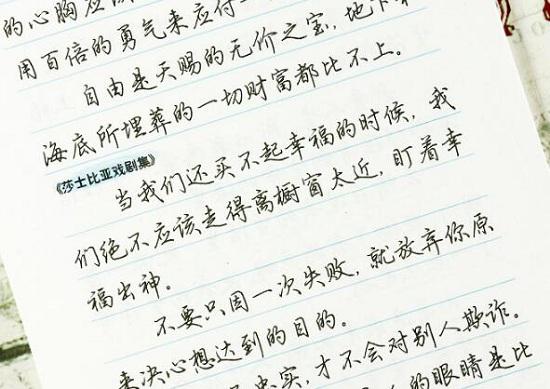 的心胸应该
用百倍的勇气来应付一
自由是天赐的无价之宝，地下和
海底所埋葬的一切财富都比不上。
《莎士比亚戏剧集》
当我们还买不起幸福的时候，我
们绝不应该走得离橱窗太近，盯着幸
福出神。
不要只因一次失败，就放弃你原
来决心想达到的目的。
忠实，才不会对别人欺诈。
的眼睛是比